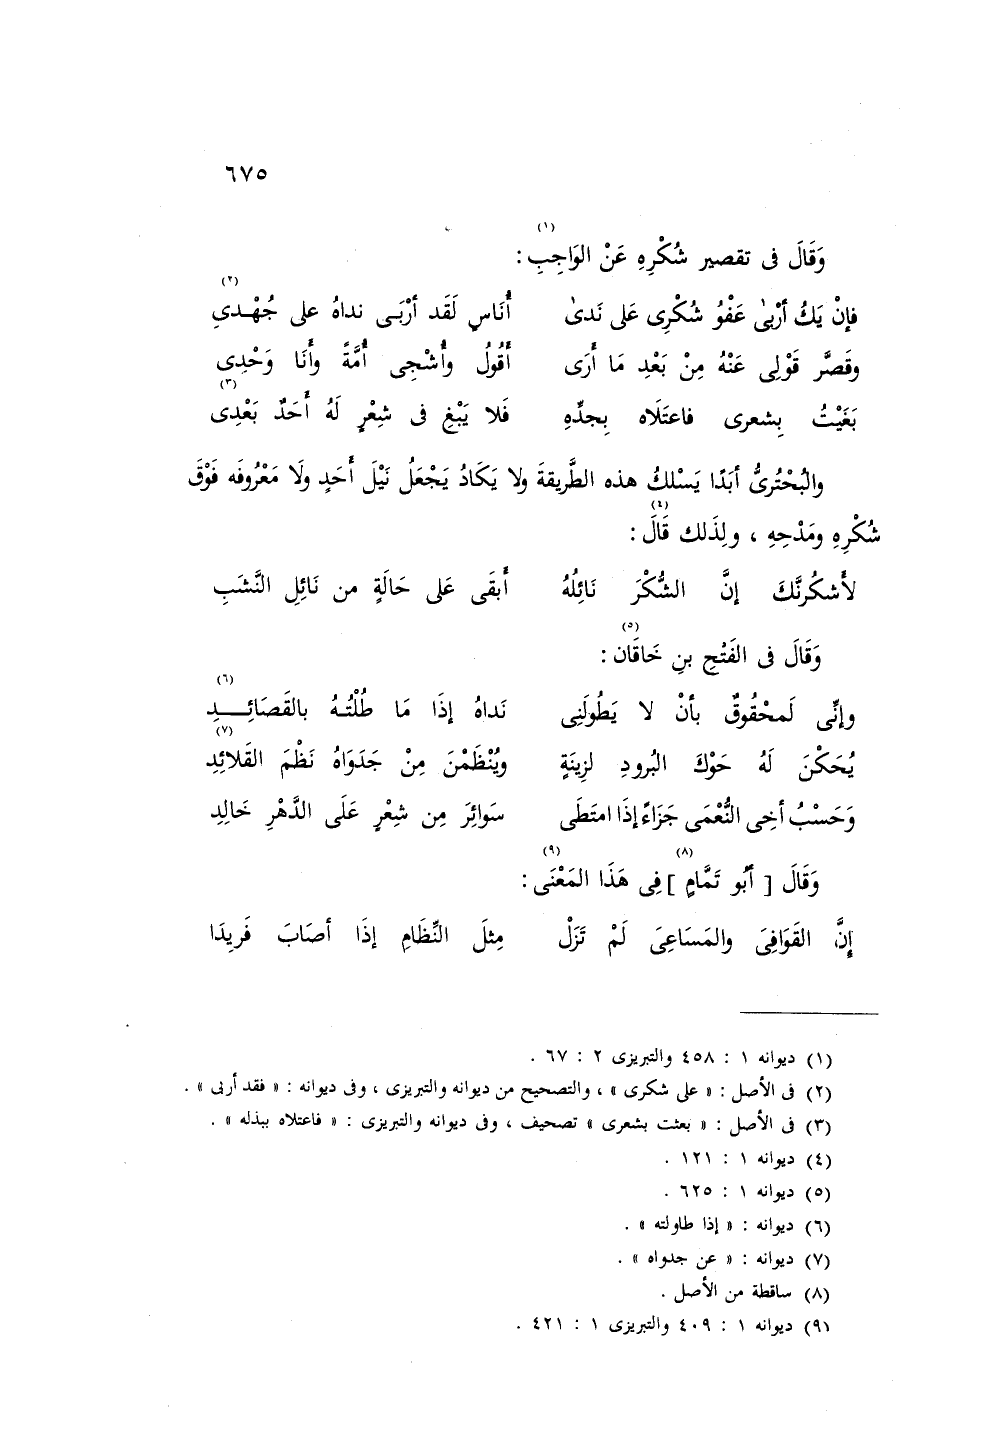 ٦٧٥
وَقَالَ فى تقصير شُكْرِهِ عَنْ الوَاجِبِ (١) :
فإنْ يَكُ أرْبىٰ عَفْوُ شُكْرِى عَلى نَدىٰ أُنَاسٍ لَقَد أرْبَى نداهُ على جُهْدىِ (٢)
وقَصَّر قَوْلِى عَنْهُ مِنْ بَعْدِ مَا أَرَى أَقُولُ وأُشْجِى أُمَّةً وأَنَا وَحْدِى
بَغَيْتُ بِشعرى فاعتَلَاه بِجدِّهِ فَلا يَبْغِ فى شِعْرٍ لَهُ أَحَدٌ بَعْدِى (٣)
والبُحْتُرِىُّ أبَدًا يَسْلكُ هذه الطَّريقةَ ولا يَكَادُ يَجْعَلُ نَيْلَ أَحَدٍ ولَا مَعْرُوفَه فَوْقَ
شُكْرِهِ ومَدْحِهِ ، ولِذَلك قَالَ (٤) :
لأَشكُرنَّكَ إنَّ الشُّكْرَ نَائِلُهُ أَبقَى عَلى حَالَةٍ من نَائِلِ النَّشَبِ
وَقَالَ فى الفَتْحِ بنِ خَاقَان (٥) :
وإنِّى لَمحْقُوقٌ بأنْ لا يَطُولَنِى نَداهُ إذَا مَا طُلْتُهُ بالقَصَائِدِ (٦)
يُحَكْنَ لَهُ حَوْكَ البُرودِ لزِينَةٍ ويُنْظَمْنَ مِنْ جَدَوَاهُ نَظْمَ القَلائِدِ (٧)
وَحَسْبُ أخِى النُّعْمَى جَزَاءً إذَا امتَطَى سَوائِرَ مِن شِعْرٍ عَلَى الدَّهْرِ خَالِدِ
وَقَالَ [ أَبُو تَمَّامٍ (٨) ] فِى هَذَا المَعْنَى (٩) :
إنَّ القَوَافِىَ والمَسَاعِىَ لَمْ تَزَلْ مِثلَ النِّظَامِ إذَا أصَابَ فَرِيدَا
(١) ديوانه ١ : ٤٥٨ والتبريزى ٢ : ٦٧ .
(٢) فى الأصل : « على شكرى » ، والتصحيح من ديوانه والتبريزى ، وفى ديوانه : « فقد أربى » .
(٣) فى الأصل : « بعثت بشعرى » تصحيف ، وفى ديوانه والتبريزى : « فاعتلاه ببذله » .
(٤) ديوانه ١ : ١٢١ .
(٥) ديوانه ١ : ٦٢٥ .
(٦) ديوانه : « إذا طاولته » .
(٧) ديوانه : « عن جدواه » .
(٨) ساقطة من الأصل .
(٩) ديوانه ١ : ٤٠٩ والتبريزى ١ : ٤٢١ .